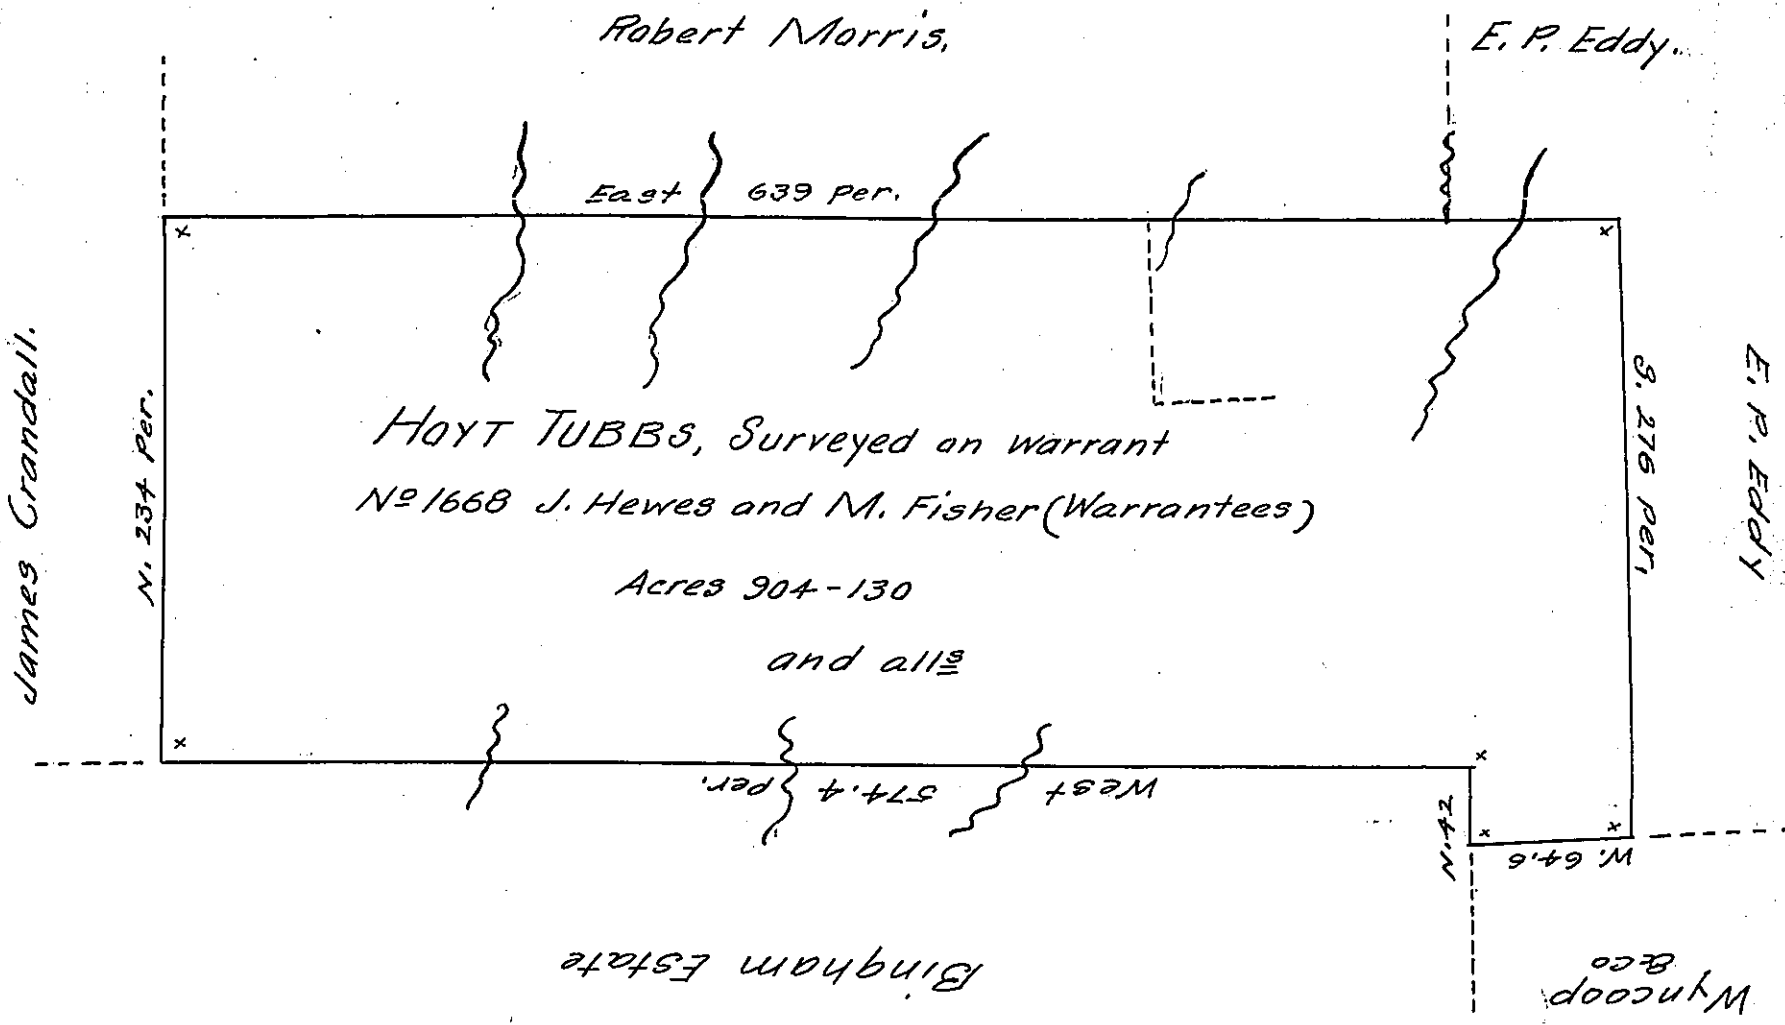 Robert Morris.
E. P. Eddy.
East 639 per.
James Crandall.
N. 234 Per.
HOYT TUBBS, Surveyed on warrant
Nº 1668 J. Hewes and M. Fisher (Warrantees)
Acres 904-130
and allˢ
S. 276 per,
E. P. Eddy
West 574.4 per.
N. 42
W. 64.6
Bingham Estate
Wyncoop
& co